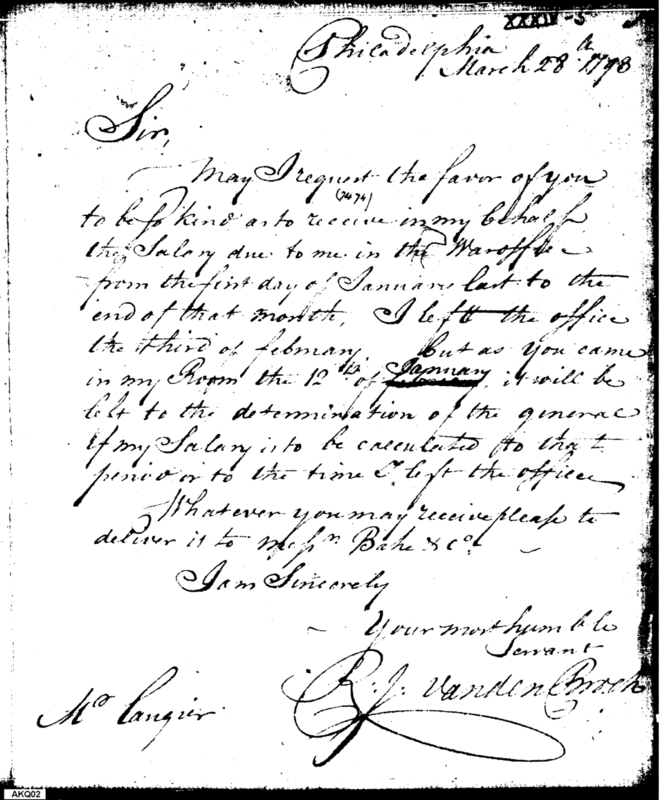 XXXIV-5
Philadelphia
March 28th 1798
Sir,
May I request the favor of you
(7474)
to be so kind as to receive in my behalf
the Salary due to me in the War office
from the first day of January last to the
end of that month. I left the office
the third of february. but as you came
January
in my Room the 12th of february it will be
left to the determination of the general
if my Salary is to be calculated to that
period or to the time I left the office
Whatever you may receive please to
deliver it to messrs Bake & Co.
I am Sincerely
Your most humble
Servant
R. J. Vanden Broek
Mr
AKQ02